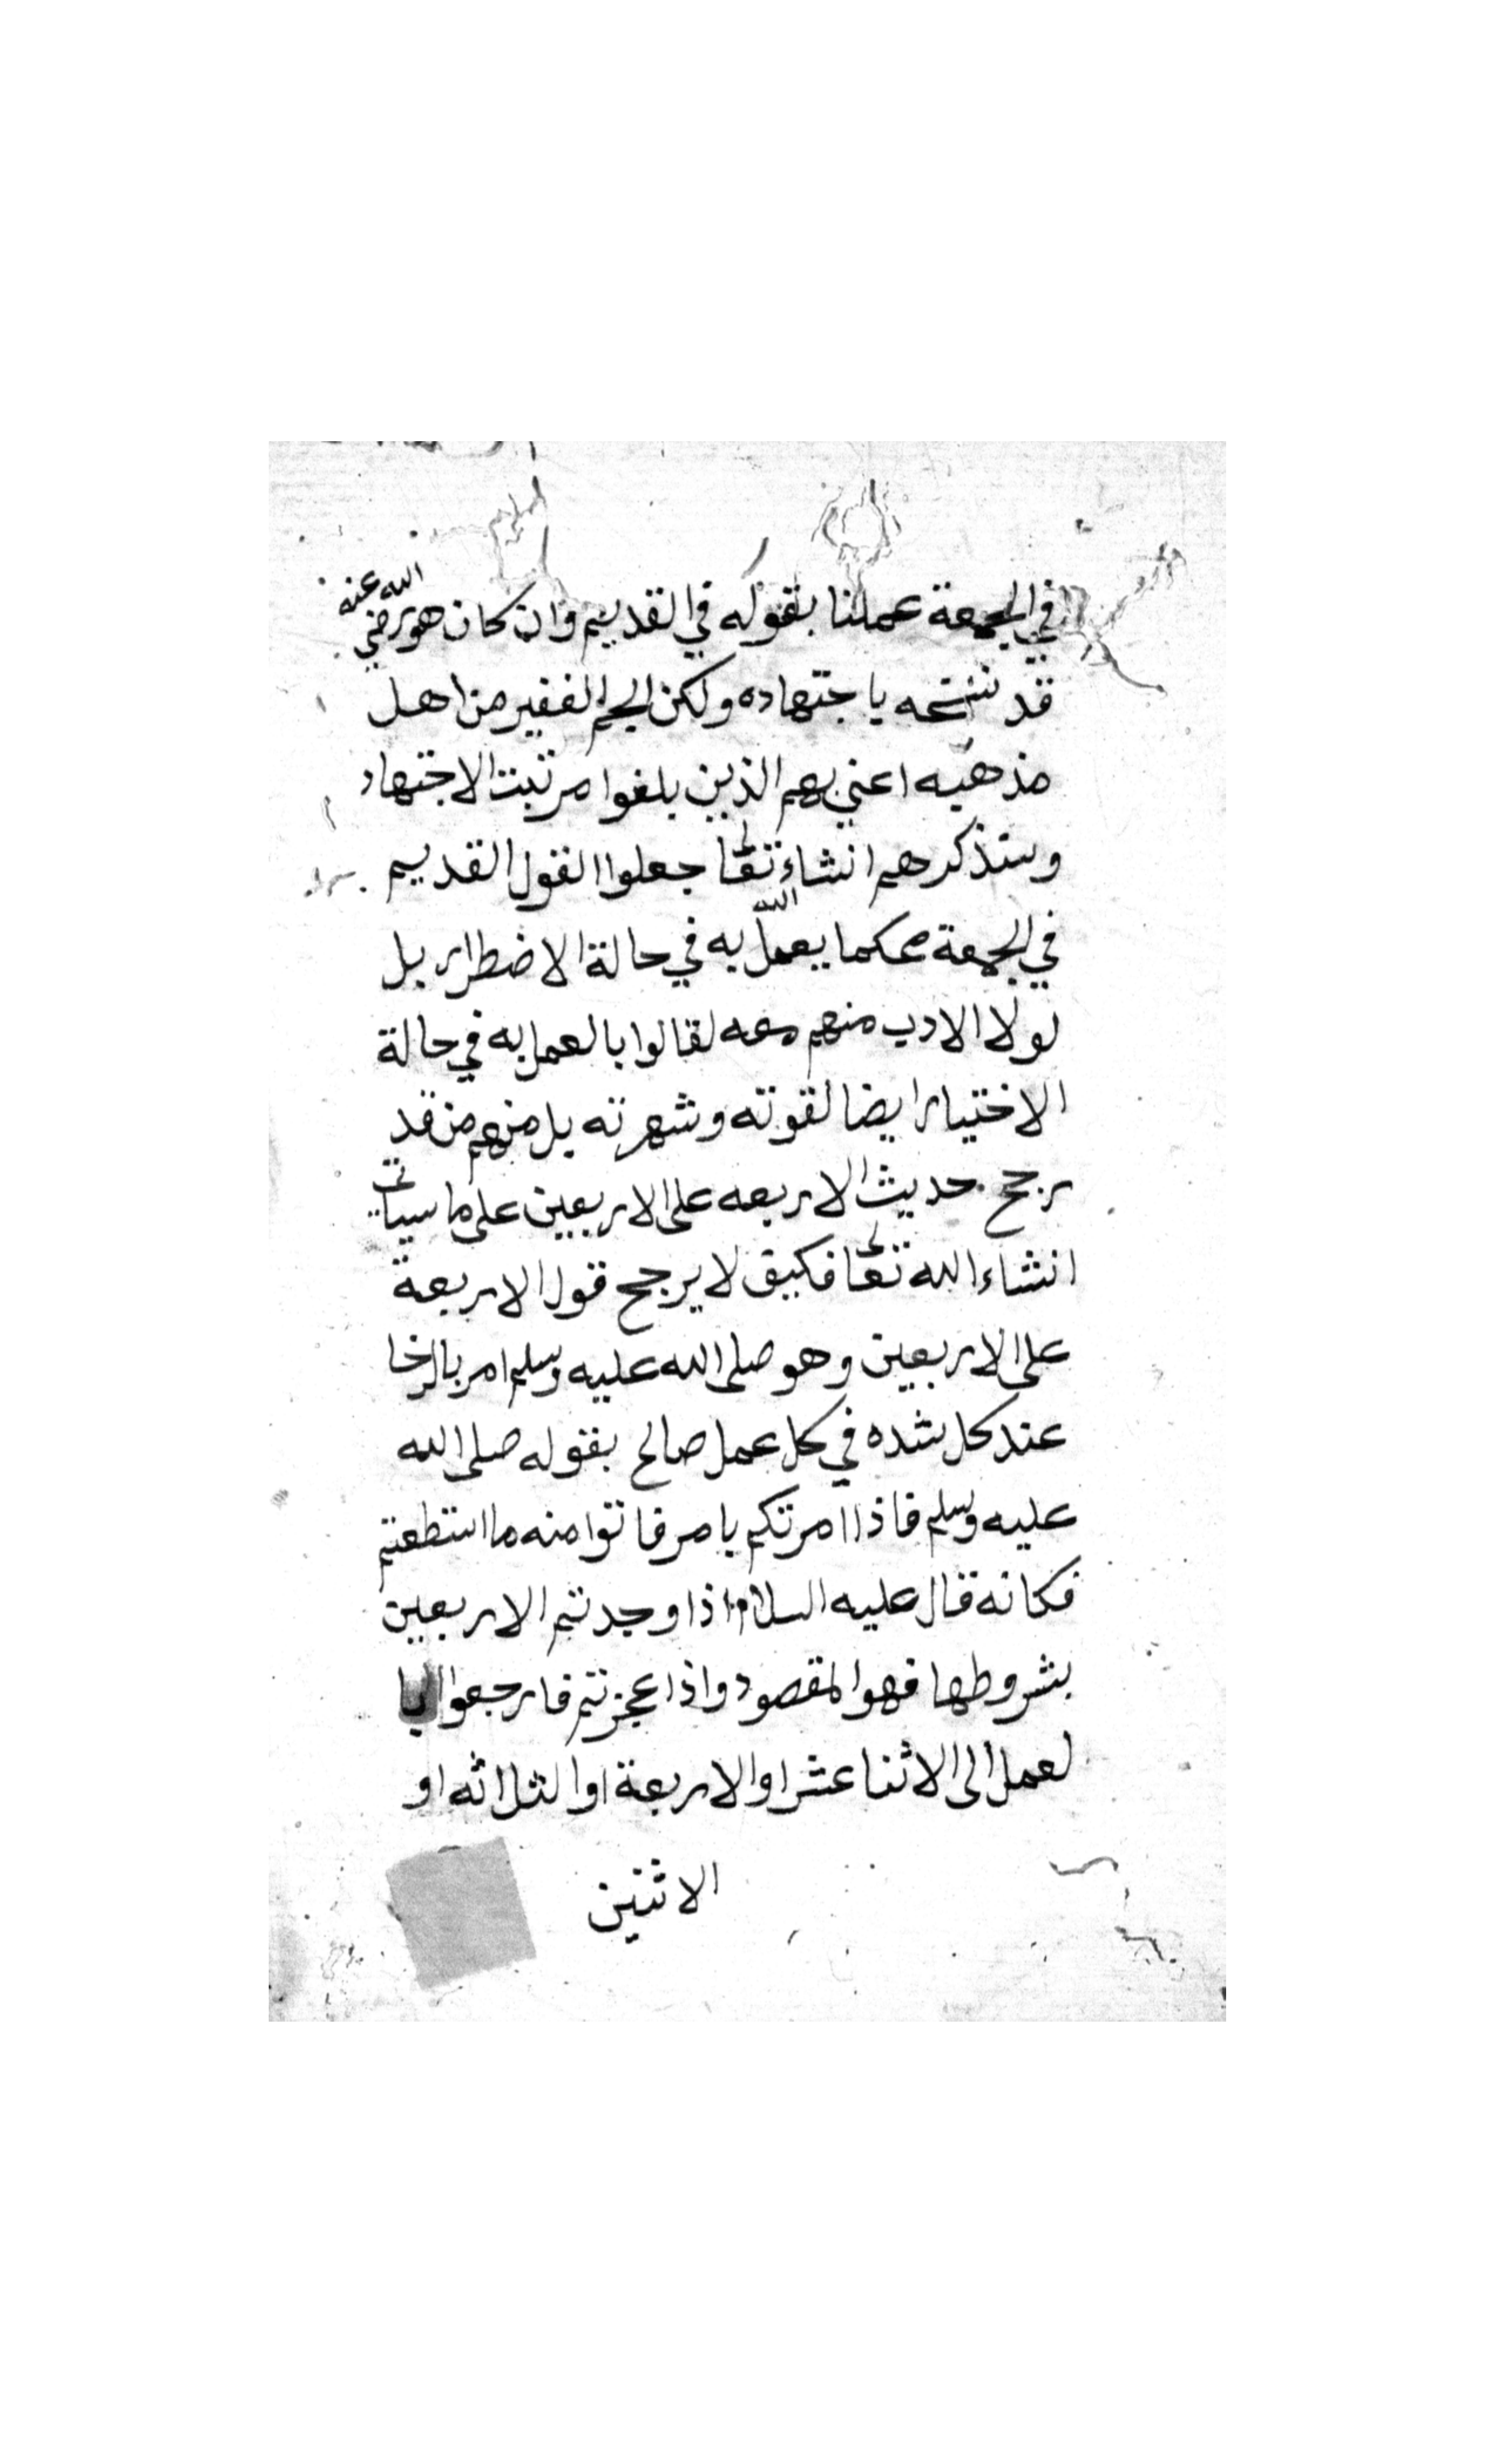 في الجمعة عملنا بقوله في القديم وان كان هو رضي الله عنه
قد نسخه باجتهاده ولكن الجم الغفير من اهل
مذهبه اعني بهم الذين بلغوا مرتبت الاجتهاد
وستذكرهم انشاء الله تعالى جعلوا القول القديم
في الجمعة محكما يعمل به في حالة الاضطرار بل
لولا الادب منهم معه لقالوا بالعمل به في حالة
الاختيار ايضا لقوته وشهرته بل منهم من قد
رجح حديث الاربعه على الاربعين على ما سياتي
انشاء الله تعالى فكيف لا يرجح قول الاربعة
على الاربعين وهو صلى الله عليه وسلم امر بالرخا
عند كل شده في كل عمل صالح بقوله صلى الله
عليه وسلم فاذا امرتكم بامر فاتوا منه ما استطعتم
فكانه قال عليه السلام اذا وجدتم الاربعين
بشروطها فهو المقصود واذا عجزتم فارجعوا با
لعمل الى الاثنا عشر او الاربعة او الثلاثه او
الاثنين